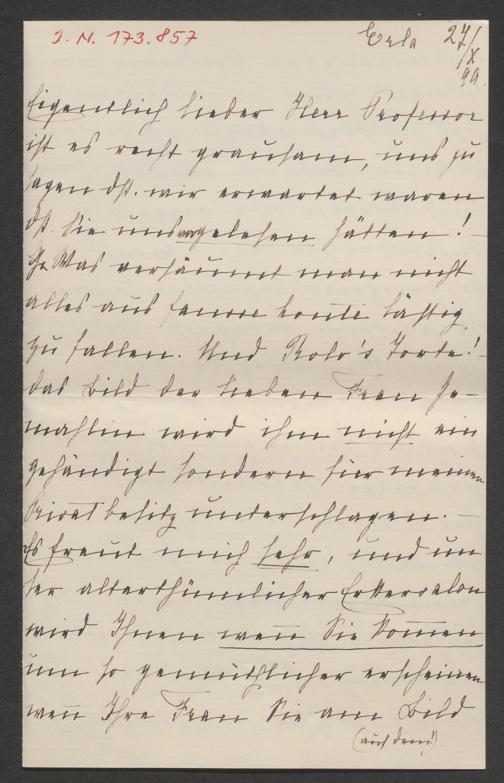 J. N. 173.857
Erla 24/X 99.
Eigentlich lieber Herr Professor
ist es recht grausam, uns zu
sagen dß. wir erwartet waren
dß. Sie uns vorgelesen hätten! -
Was versäumt man nicht
alles aus lästig
zu fallen. Und Rolo's Torte! -
das Bild der lieben Frau Ge-
mahlin wird ihm nicht ein
gehändigt sondern für meinen
Privatbesitz unterschlagen. -
Es freut mich sehr, und un
ser alterthümlicher Erkersalon
wird Ihnen wen̄ Sie kom̄en
um so gemüthlicher erscheinen
wen̄ Ihre Frau Sie am Bild
(auf dem!)